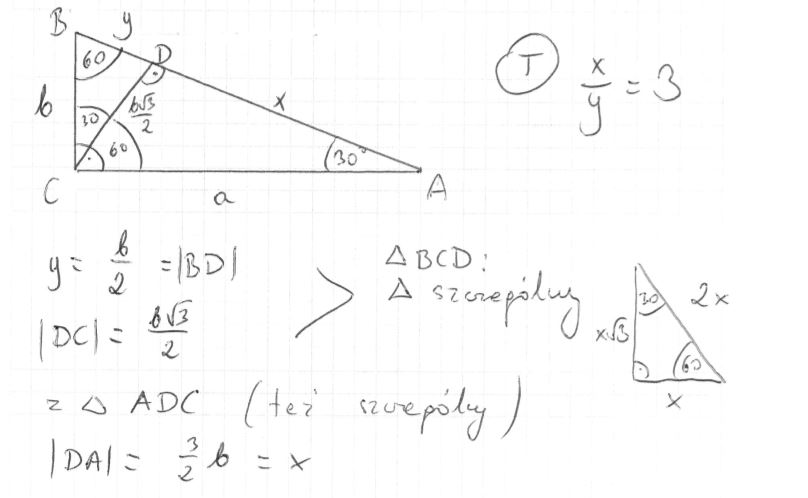 B y D
60
b 30 b√3/2 x
60 30°
C a A
T x/y = 3
y = b/2 = |BD|
|DC| = b√3/2
> △ BCD:
△ szczególny
30 2x
x√3 60
x
z △ ADC (też szczególny)
|DA| = 3/2 b = x